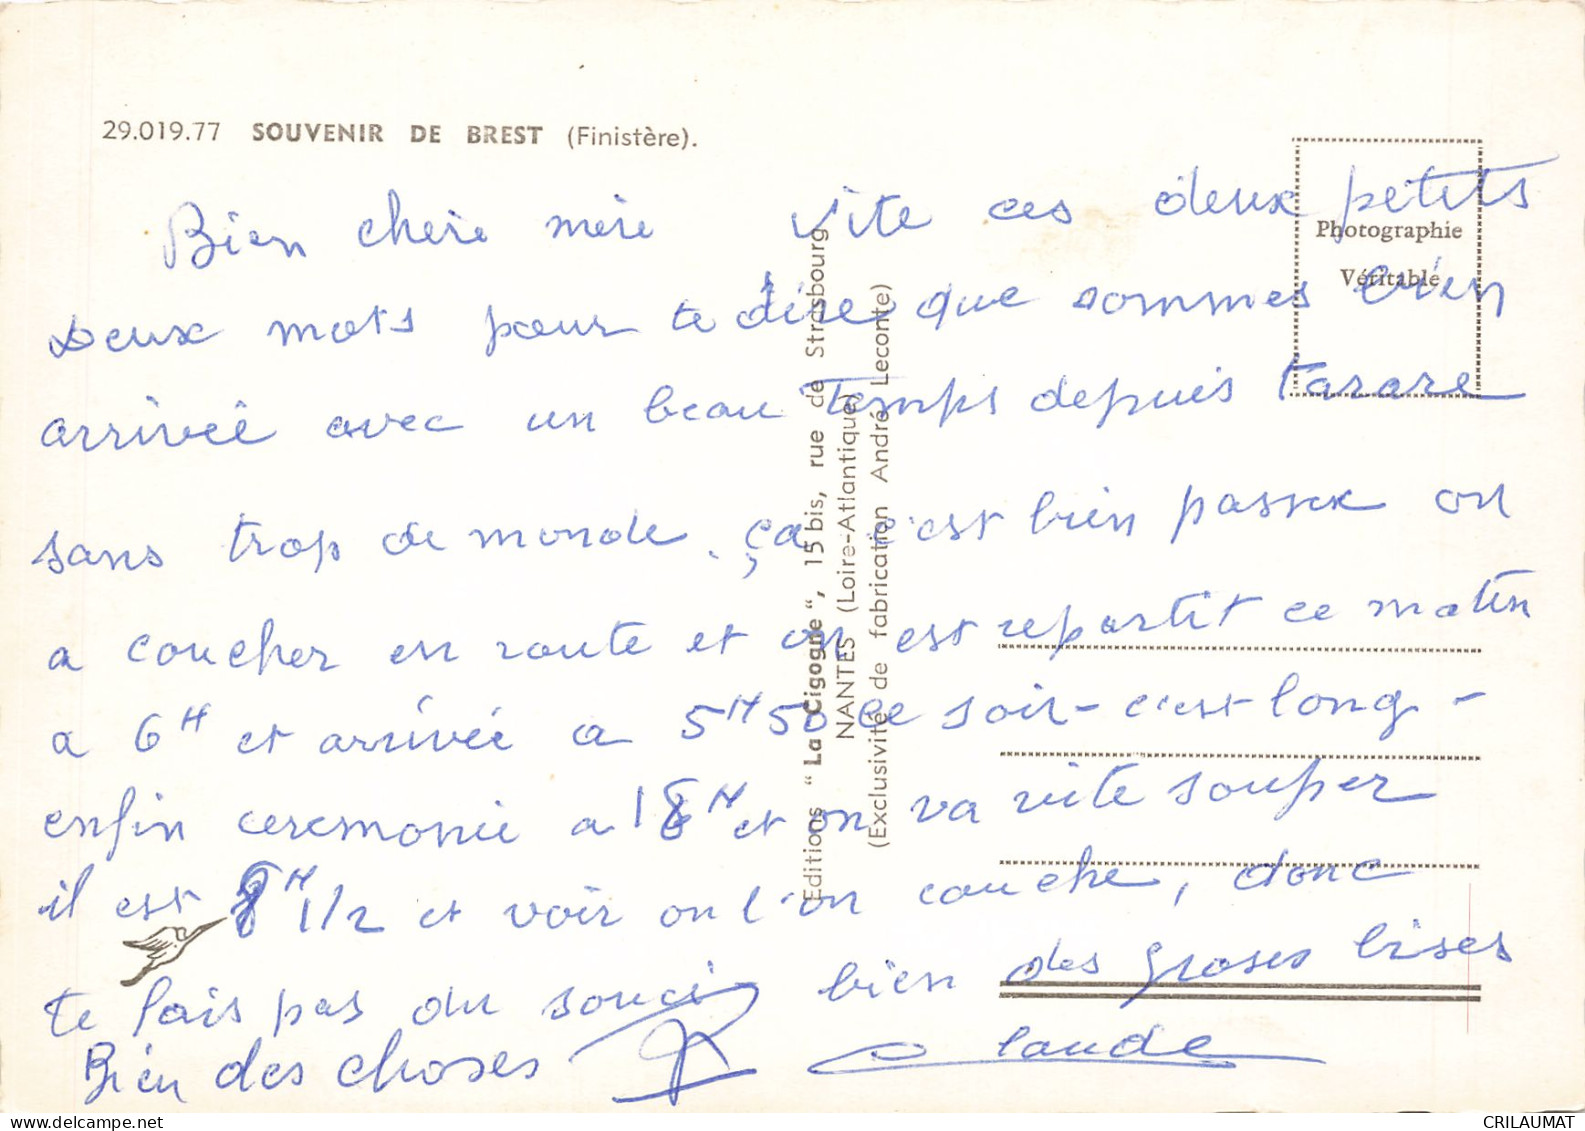 29.019.77 SOUVENIR DE BREST (Finistère).
Photographie
Véritable
Bien chère mère vite ces deux petits
deux mots pour te dire que sommes bien
arrivée avec un beau temps depuis Tarare
sans trop de monde. ça c'est bien passer on
a coucher en route et on est repartit ce matin
a 6H et arrivée a 5H50 ce soir - c'est long -
enfin ceremonie a 18H et on va vite souper
il est 8H 1/2 et voir ou l'on couche, donc
te fais pas du souci bien des groses bises
Bien des choses R Claude
Editions "La Cigogne", 15 bis, rue de Strasbourg
NANTES (Loire-Atlantique)
(Exclusivité de fabrication André Leconte)
CRILAUMAT